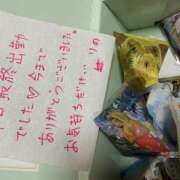 今日最終出勤
でした♡今まで
ありがとうございました。
お気持ちだけ…
りの